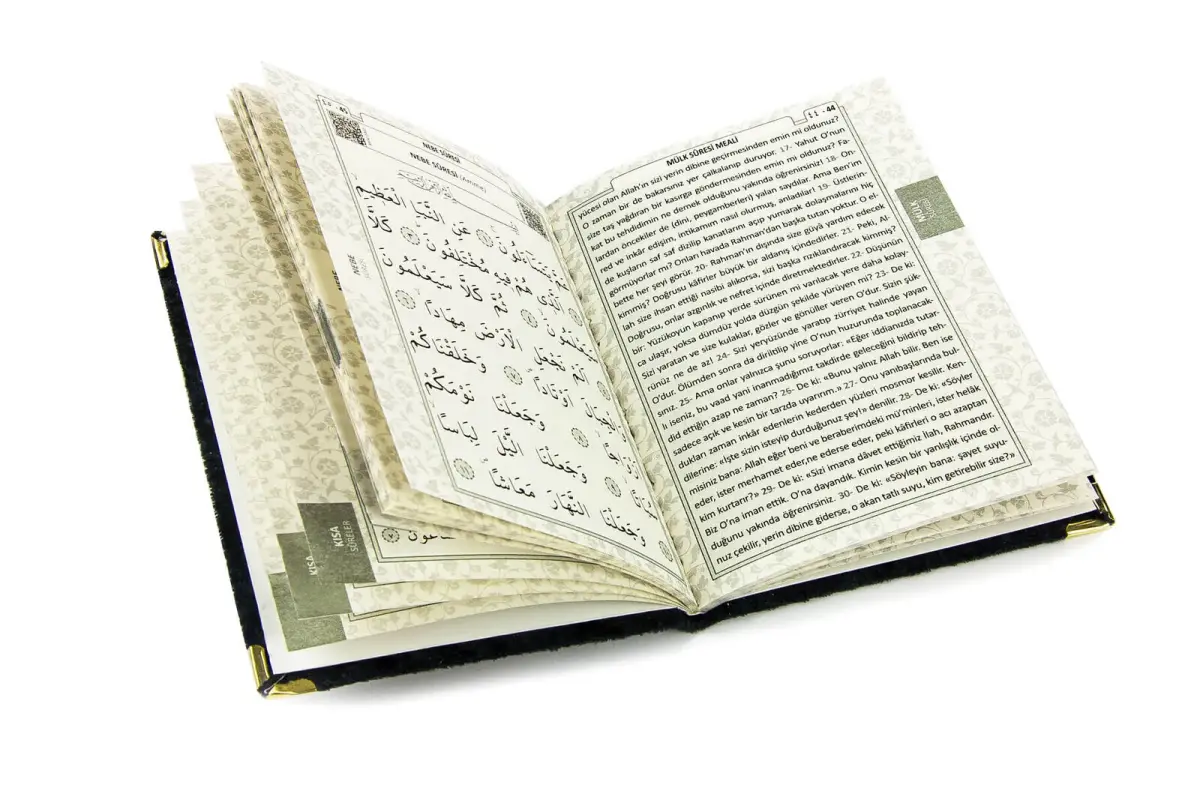 ٤٤ - 44
MÜLK SÛRESİ MEALİ
yücesi olan Allah'ın sizi yerin dibine geçirmesinden emin mi oldunuz?
O zaman bir de bakarsınız yer çalkalanıp duruyor. 17- Yahut O'nun
size taş yağdıran bir kasırga göndermesinden emin mi oldunuz? Fa-
kat bu tehdidimin ne demek olduğunu yakında öğrenirsiniz! 18- On-
lardan öncekiler de (dini, peygamberleri) yalan saydılar. Ama Ben'im
red ve inkâr edişim, intikamım nasıl olurmuş, anladılar! 19- Üstlerin-
de kuşların saf saf dizilip kanatlarını açıp yumarak dolaşmalarını hiç
görmüyorlar mı? Onları havada Rahman'dan başka tutan yoktur. O el-
bette her şeyi görür. 20- Rahman'ın dışında size gûyâ yardım edecek
kimmiş? Doğrusu kâfirler büyük bir aldanış içindedirler. 21- Peki, Al-
lah size ihsan ettiği nasibi alıkorsa, sizi başka rızıklandıracak kimmiş?
Doğrusu, onlar azgınlık ve nefret içinde diretmektedirler. 22- Düşünün
bir: Yüzükoyun kapanıp yerde sürünen mi varılacak yere daha kolay-
ca ulaşır, yoksa dümdüz yolda düzgün şekilde yürüyen mi? 23- De ki:
Sizi yaratan ve size kulaklar, gözler ve gönüller veren O'dur. Sizin şükü-
rünüz ne de az! 24- Sizi yeryüzünde yaratıp zürriyet halinde yayan
O'dur. Ölümden sonra da diriltilip yine O'nun huzurunda toplanacak-
sınız. 25- Ama onlar yalnızca şunu soruyorlar: «Eğer iddianızda tutar-
lı iseniz, bu vaad yani inanmadığımız takdirde geleceğini bildirip teh-
did ettiğin azap ne zaman? 26- De ki: «Bunu yalnız Allah bilir, Ben ise
sadece açık ve kesin bir tarzda uyarırım.» 27- Onu yanıbaşlarında bul-
dukları zaman inkâr edenlerin kederden yüzleri mosmor kesilir. Ken-
dilerine: «İşte sizin isteyip durduğunuz şey!» denilir. 28- De ki: «Söyler
misiniz bana: Allah eğer beni ve beraberimdeki mü'minleri, ister helâk
eder, ister merhamet eder,ne ederse eder, peki kâfirleri o acı azaptan
kim kurtarır?» 29- De ki: «Sizi imana dâvet ettiğimiz ilah, Rahmandır.
Biz O'na iman ettik. O'na dayandık. Kimin kesin bir yanlışlık içinde ol-
duğunu yakında öğrenirsiniz. 30- De ki: «Söyleyin bana: şayet suyu-
nuz çekilir, yerin dibine giderse, o akan tatlı suyu, kim getirebilir size?»
MÜLK
SÛRESİ
٤٥ - 45
NEBE SÛRESİ
NEBE SÛRESİ (Amme)
عَنِ النَّبَاِ الْعَظِيمِ
يَتَسَٓاءَلُونَ
كَلَّا
اَلَّذِى هُمْ فِيهِ مُخْتَلِفُونَ
ثُمَّ كَلَّا سَيَعْلَمُونَ
اَلَمْ نَجْعَلِ الْاَرْضَ مِهَادًا
اَوْتَادًا
وَخَلَقْنَاكُمْ
وَجَعَلْنَا نَوْمَكُمْ
وَجَعَلْنَا الَّيْلَ لِبَاسًا
وَجَعَلْنَا النَّهَارَ مَعَاشًا
NEBE
KISA
SÛRELER
KISA